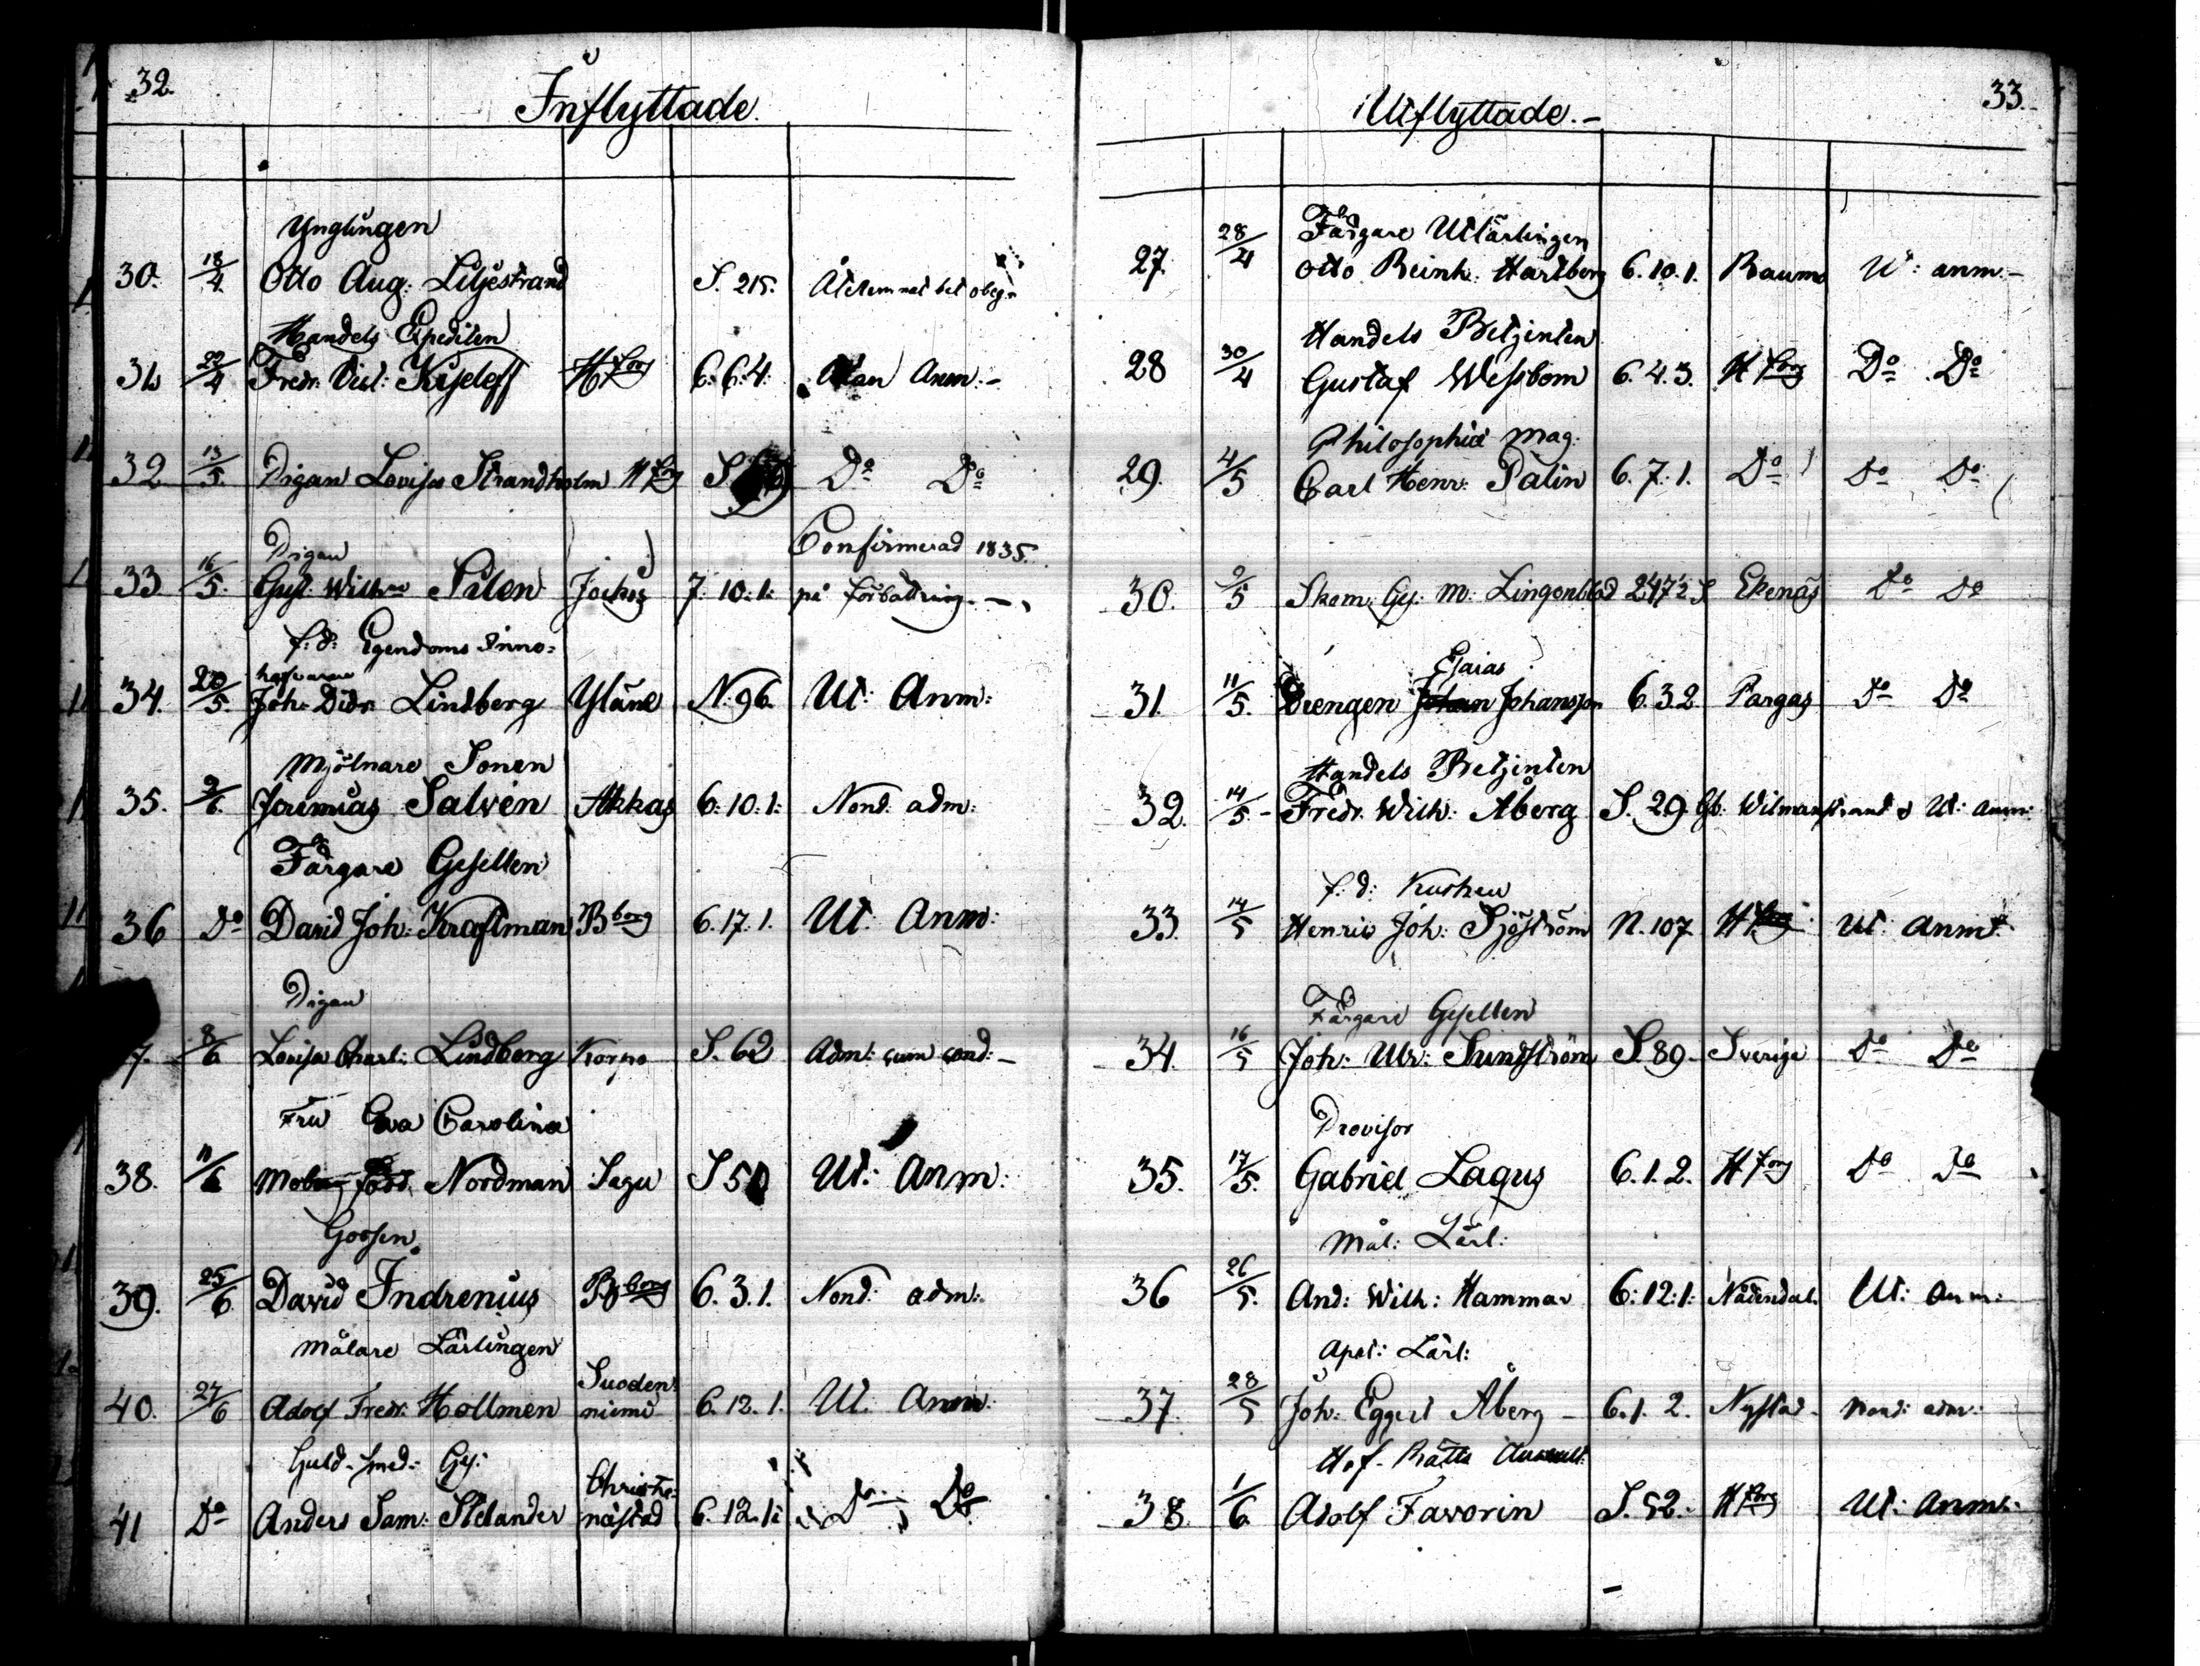 32.
Inflyttade.
Ynglingen
30. 18/4 Otto Aug: Liljestrand S. 215. Återlemnat bet
Handels Expediten
31. 22/4 Fredr: Kiseleff Hfors 6. 6. 4. Utan Anm:-
32 13/5. Pigan Lovisa Strandholm Hfors S. Do Do
Pigan Confirmerad 1835.
33 16/5. Gust. Wilh:na Silen Jockis 7. 10. 1. på förbättring.-
f: d: Egendoms Inne=
hafvaren
34. 20/5. Joh: Didr: Lindberg Yläne N. 96. Ut: Anm:
Mjölnare Sonen
35. 9/6. Jeremias Salvén Akkas 6. 10. 1: Nond. adm:
Färgare Gesellen
36 Do David Joh: Kraftman Bborg 6. 17. 1. Ut. Anm:
Pigan
7. 8/6 Lovisa Charl: Lindberg Korpo S. 62 Adm: cum cond:-
Fru Eva Carolina
38. 11/6 Nordman Sagu S 50 Ut: Anm:
Gossen
39. 25/6 David Indrenius Bborg 6. 3. 1. Nond: adm:
Målare Lärlingen
40. 27/6 Adolf Fredr: Hollmen Suoden: niemi 6. 12. 1. Ut. Anm:
Guld-smed: Ges:
41 Do Anders Sam: Stelander Christi: nästad 6. 12. 1: Do Do
33.
Utflyttade.-
Färgare Utlärlingen
27. 28/4 Otto Reinh: Hartberg 6. 10. 1. Raumo U: anm.-
Handels Betjenten
28 30/4 Gustaf Wessbom 6. 4. 3. Hfors Do Do
Philosophiæ Mag:
29. 4/5 Carl Henr: Palin 6. 7. 1. Do Do Do
30. 9/5 Skom: Ges: M: Lingonblad 247½ S Ekenäs Do Do
Esaias
31. 11/5. Drengen Johan Johansson 6. 3. 2. Pargas Do Do
Handels Betjenten
32. 14/5.- Fredr. Wilh: Åberg S. 29 Gb. Wilmanstrand Ut: anm:
f: d: Kusken
33. 14/5 Henric Joh: Sjöström N. 107 Hfors Ut: Anm:
Färgare Gesellen
34. 16/5 Joh: Ulr: Sundström S. 89. Sverige Do Do
Provisor
35. 17/5. Gabriel Lagus 6. 1. 2. Hfors Do Do
Mål: Lärl:
36 26/5. And: Wilh: Hammar 6: 12: 1: Nådendal. Ut: anm:
Apot: Lärl:
37 28/5 Joh: Eggert Åberg - 6. 1. 2. Nystad. Nond: adm:
Hof-Rätts Auscult:
38. 1/6. Adolf Favorin S. 52. Hfors Ut: Anm: